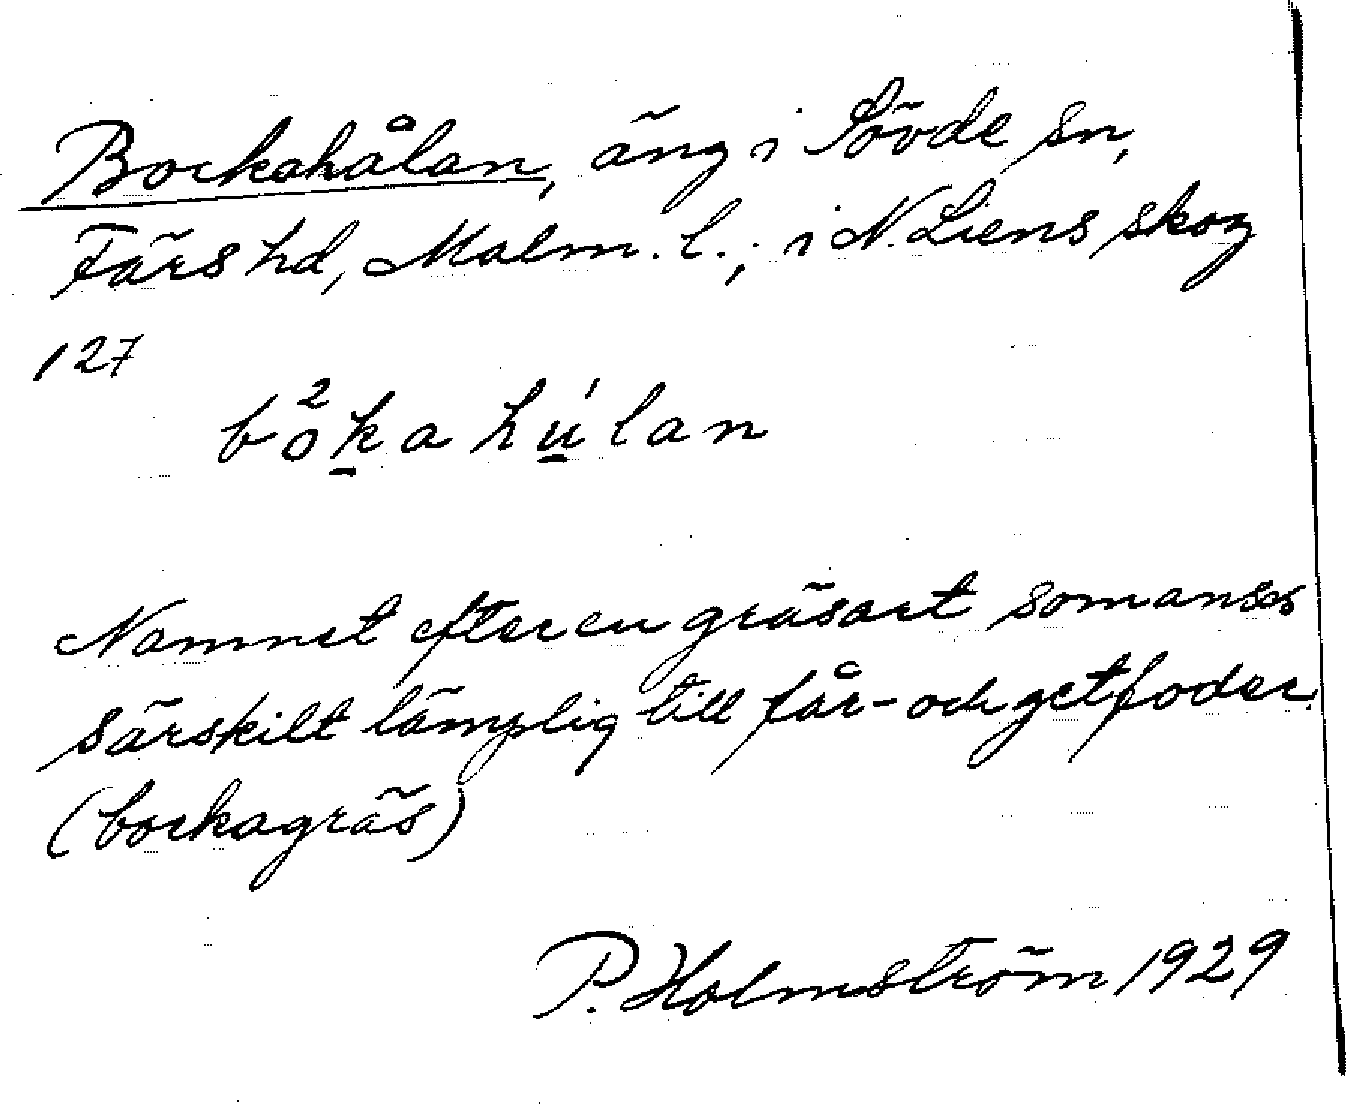 Bockahålan, äng i Sövde sn,
Färs hd, Malm. l.; i N. Liens skog
127
bo²kahu̱'lan
Namnet efter en gräsart som anses
särskilt lämplig till får- och getfoder.
(bockagräs)
P. Holmström 1929